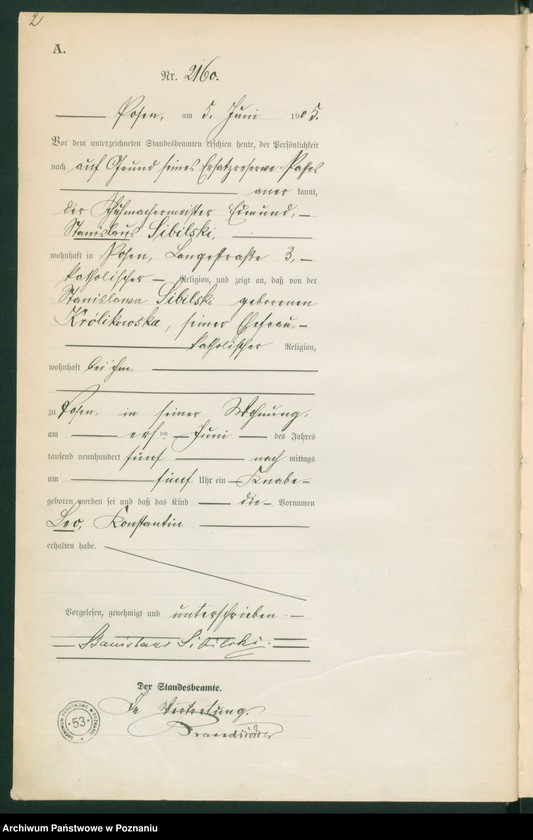 2
A.
Nr. 2160.
Posen, am 5. Juni 1905.
Vor dem unterzeichneten Standesbeamten erschien heute, der Persönlichkeit
nach auf Grund seines Ersatzreserve-Passes
anerkannt,
der Schuhmachermeister Edmund,
Stanislaus Sibilski,
wohnhaft in Posen, Langestraße 3,
katholischer Religion, und zeigt an, daß von der
Stanislawa Sibilski geborenen
Królikowska, seiner Ehefrau,
katholischer Religion,
wohnhaft bei ihm,
zu Posen, in seiner Wohnung,
am ersten Juni des Jahres
tausend neunhundert fünf nach mittags
um fünf Uhr ein Knabe
geboren worden sei und daß das Kind die Vornamen
Leo, Konstantin
erhalten habe.
Vorgelesen, genehmigt und unterschrieben.
Stanislaus Sibilski.
Der Standesbeamte.
In Vertretung.
ARCHIWUM PAŃSTWOWE W POZNANIU
53
Archiwum Państwowe w Poznaniu